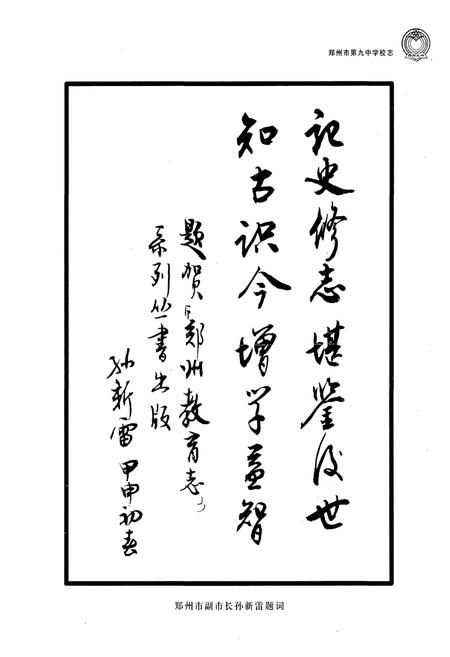 郑州市第九中学校志
记史修志堪鉴后世
知古识今增学益智
题贺「郑州教育志」
系列丛书出版
孙新雷 甲申初春
郑州市副市长孙新雷题词